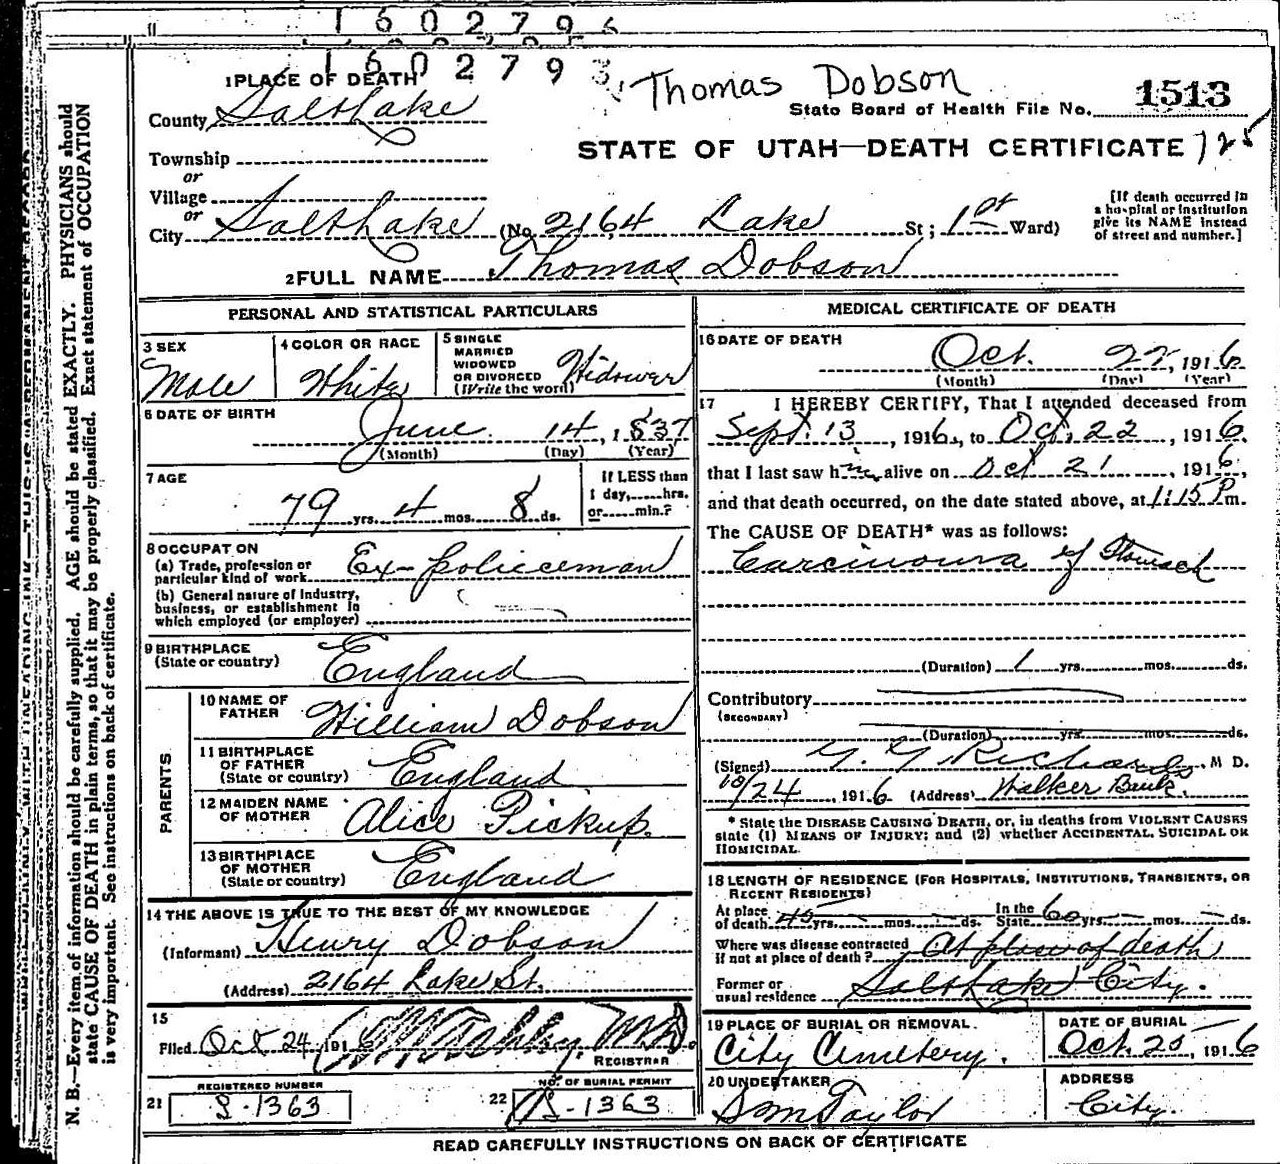 1 6 0 2 7 9 6
1 6 0 2 7 9 3
Thomas Dobson
1 PLACE OF DEATH
State Board of Health File No. 1513
County Salt Lake
STATE OF UTAH—DEATH CERTIFICATE 125
Township
or
Village
or
City Salt Lake (No. 2164 Lake St; 1st Ward)
[If death occurred in
a hospital or institution
give its NAME instead
of street and number.]
2 FULL NAME Thomas Dobson
PERSONAL AND STATISTICAL PARTICULARS
3 SEX
Male
4 COLOR OR RACE
White
5 SINGLE
MARRIED
WIDOWED
OR DIVORCED
(Write the word)
Widower
6 DATE OF BIRTH
June 14, 1837
(Month) (Day) (Year)
7 AGE
79 yrs. 4 mos. 8 ds.
If LESS than
1 day, hrs.
or min.?
8 OCCUPATION
(a) Trade, profession or
particular kind of work Ex-policeman
(b) General nature of Industry,
business, or establishment in
which employed (or employer)
9 BIRTHPLACE
(State or country) England
PARENTS
10 NAME OF
FATHER William Dobson
11 BIRTHPLACE
OF FATHER
(State or country) England
12 MAIDEN NAME
OF MOTHER Alice Pickup.
13 BIRTHPLACE
OF MOTHER
(State or country) England
14 THE ABOVE IS TRUE TO THE BEST OF MY KNOWLEDGE
(Informant) Henry Dobson
(Address) 2164 Lake St.
15
Filed Oct 24, 1916 M.D.
REGISTRAR
REGISTERED NUMBER
21 S-1363
NO. OF BURIAL PERMIT
22 S-1363
MEDICAL CERTIFICATE OF DEATH
16 DATE OF DEATH
Oct. 22, 1916
(Month) (Day) (Year)
17 I HEREBY CERTIFY, That I attended deceased from
Sept. 13, 1916, to Oct. 22, 1916.
that I last saw him alive on Oct 21, 1916,
and that death occurred, on the date stated above, at 1:15 P m.
The CAUSE OF DEATH* was as follows:
Carcinoma of Stomach
(Duration) 1 yrs. mos. ds.
Contributory
(SECONDARY)
(Duration) yrs. mos. ds.
(Signed) G. G. Richards, M D.
10/24, 1916 (Address) Walker Bank.
* State the DISEASE CAUSING DEATH, or, in deaths from VIOLENT CAUSES
state (1) MEANS OF INJURY; and (2) whether ACCIDENTAL, SUICIDAL OR
HOMICIDAL.
18 LENGTH OF RESIDENCE (FOR HOSPITALS, INSTITUTIONS, TRANSIENTS, OR
RECENT RESIDENTS)
At place
of death 45 yrs. mos. ds.
In the
State 60 yrs. mos. ds.
Where was disease contracted
if not at place of death? At place of death
Former or
usual residence Salt Lake City.
19 PLACE OF BURIAL OR REMOVAL.
City Cemetery.
DATE OF BURIAL
Oct. 25, 1916
20 UNDERTAKER
S M Taylor
ADDRESS
City.
READ CAREFULLY INSTRUCTIONS ON BACK OF CERTIFICATE
N. B.—Every item of information should be carefully supplied. AGE should be stated EXACTLY. PHYSICIANS should
state CAUSE OF DEATH in plain terms, so that it may be properly classified. Exact statement of OCCUPATION
is very important. See instructions on back of certificate.